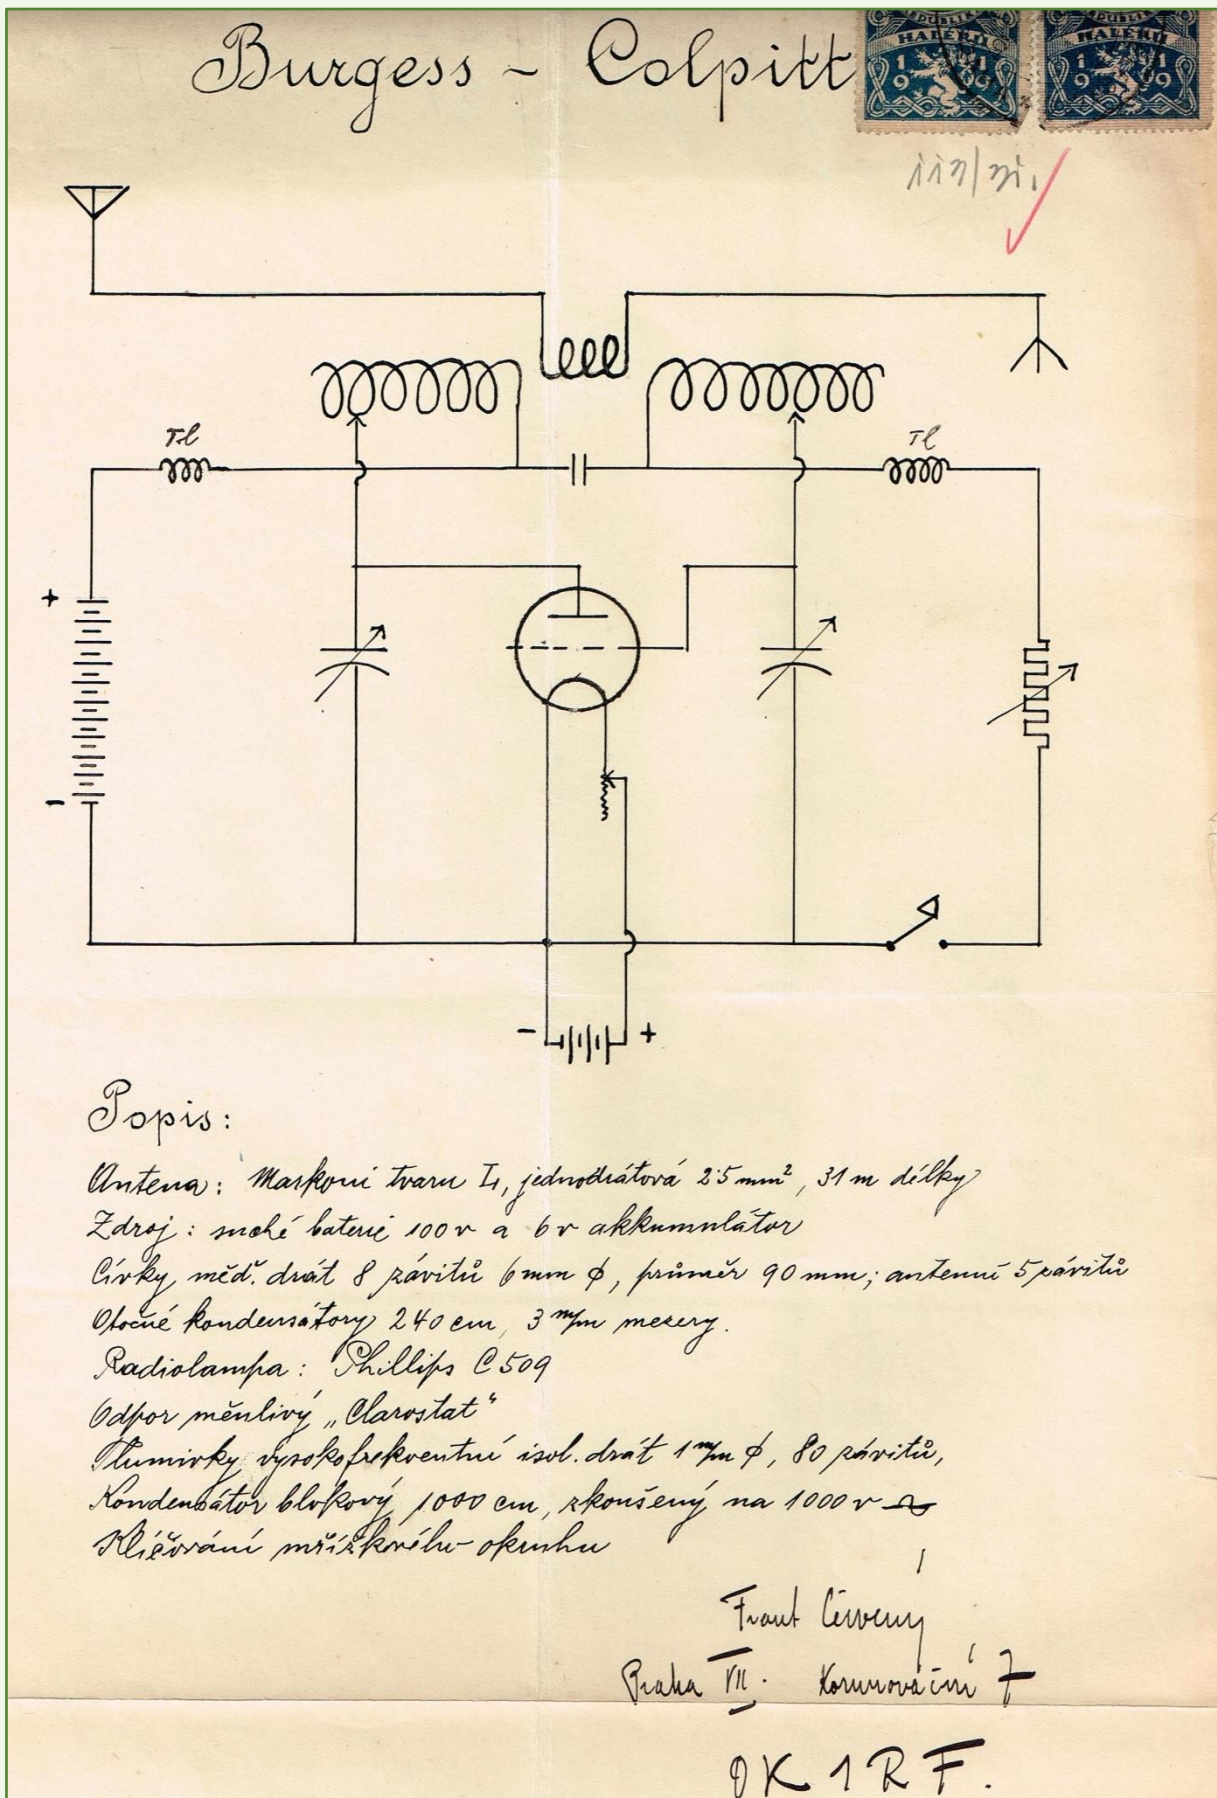 Burgess ~ Colpitt
HALÉŘŮ HALÉŘŮ
19 19 19 19
Tl Tl
+
-
- +
Popis:
Antena: Markoni tvaru L, jednodrátová 2·5 mm², 31 m délky
Zdroj: suché baterie 100 v a 6 v akkumulátor
Cívky, měď. drát 8 závitů 6 mm ϕ, průměr 90 mm; antenní 5 závitů
Otočné kondensátory 240 cm, 3 m/m mezery.
Radiolampa: Phillips C 509
Odpor měnlivý „Clarostat“
Tlumivky vysokofrekventní isol. drát 1 m/m ϕ, 80 závitů,
Kondensátor blokový 1000 cm, zkoušený na 1000 v
Klíčování mřížkového okruhu
Frant Červený
Praha VII. Korunovační 7
OK 1RF.